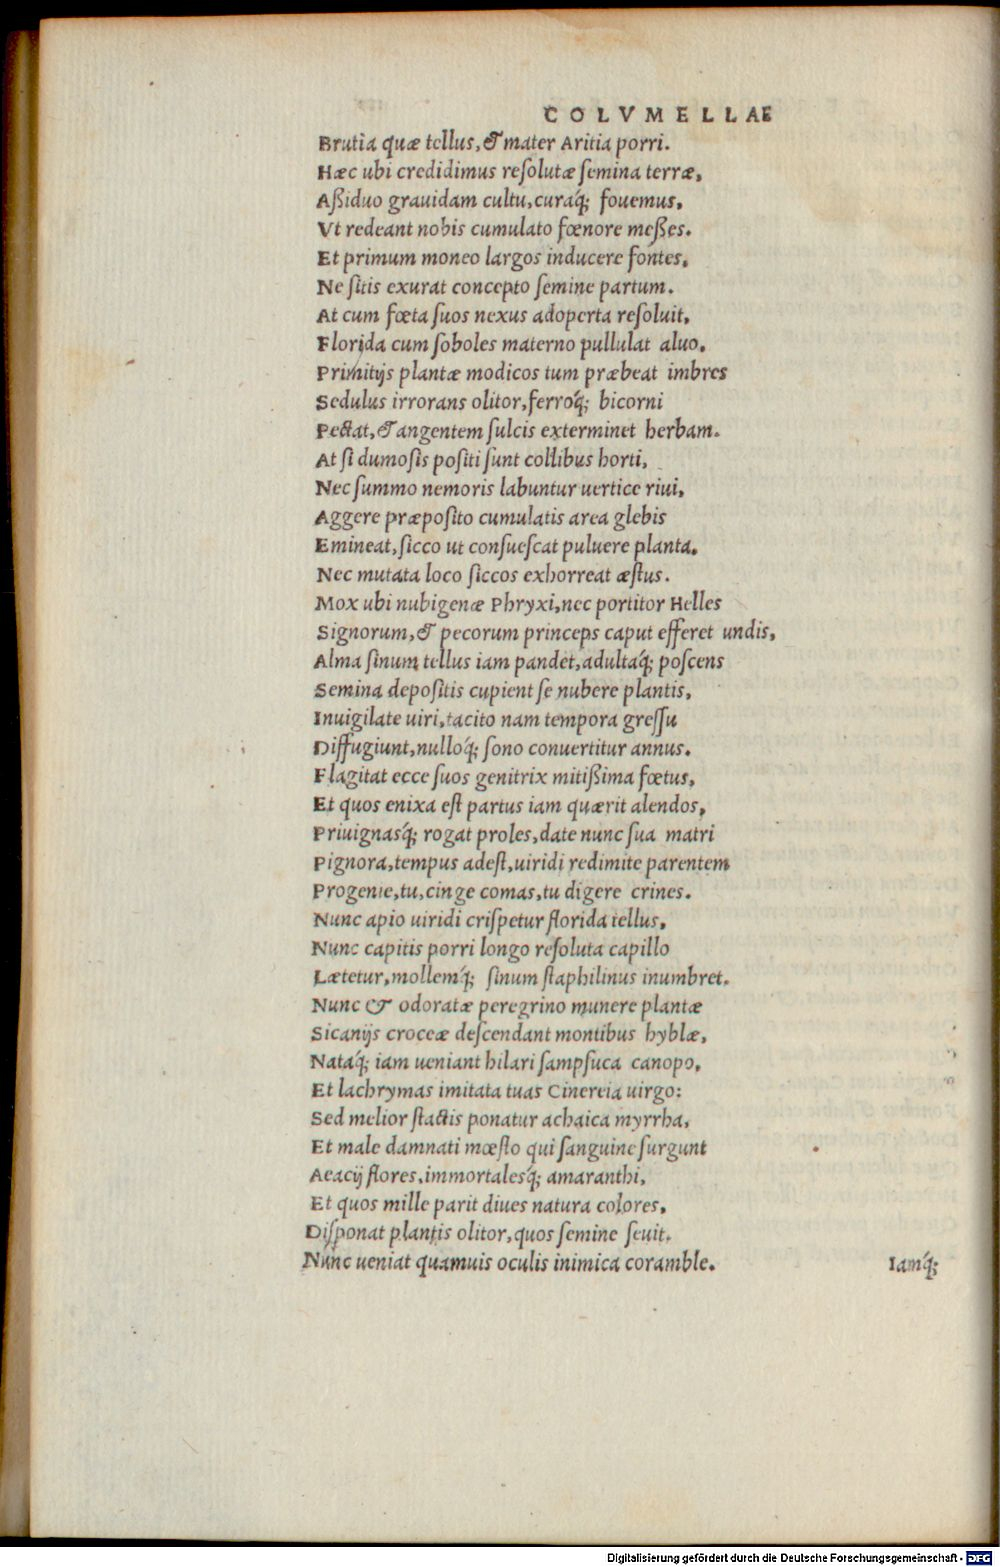 COLVMELLAE
Brutia quæ tellus, & mater Aritia porri.
Hæc ubi credidimus reſolutæ ſemina terræ,
Aßiduo grauidam cultu, curaq́; fouemus,
Vt redeant nobis cumulato fœnore meßes.
Et primum moneo largos inducere fontes,
Ne ſitis exurat concepto ſemine partum.
At cum fœta ſuos nexus adoperta reſoluit,
Florida cum ſoboles materno pullulat aluo,
Primitijs plantæ modicos tum præbeat imbres
Sedulus irrorans olitor, ferroq́; bicorni
Pectat, & angentem ſulcis exterminet herbam.
At ſi dumoſis poſiti ſunt collibus horti,
Nec ſummo nemoris labuntur uertice riui,
Aggere præpoſito cumulatis area glebis
Emineat, ſicco ut conſueſcat puluere planta,
Nec mutata loco ſiccos exhorreat æſtus.
Mox ubi nubigenæ Phryxi, nec portitor Helles
Signorum, & pecorum princeps caput efferet undis,
Alma ſinum tellus iam pandet, adultaq́; poſcens
Semina depoſitis cupient ſe nubere plantis,
Inuigilate uiri, tacito nam tempora greſſu
Diffugiunt, nulloq́; ſono conuertitur annus.
Flagitat ecce ſuos genitrix mitißima fœtus,
Et quos enixa eſt partus iam quærit alendos,
Priuignasq́; rogat proles, date nunc ſua matri
Pignora, tempus adeſt, uiridi redimite parentem
Progenie, tu, cinge comas, tu digere crines.
Nunc apio uiridi criſpetur florida tellus,
Nunc capitis porri longo reſoluta capillo
Lætetur, mollemq́; ſinum ſtaphilinus inumbret.
Nunc & odoratæ peregrino munere plantæ
Sicanijs croceæ deſcendant montibus hyblæ,
Nataq́; iam ueniant hilari ſampſuca canopo,
Et lachrymas imitata tuas Cinereia uirgo:
Sed melior ſtactis ponatur achaica myrrha,
Et male damnati mœſto qui ſanguine ſurgunt
Aeacij flores, immortalesq́; amaranthi,
Et quos mille parit diues natura colores,
Diſponat plantis olitor, quos ſemine ſeuit.
Nunc ueniat quamuis oculis inimica coramble.
Iamq́;
Digitalisierung gefördert durch die Deutsche Forschungsgemeinschaft - DFG